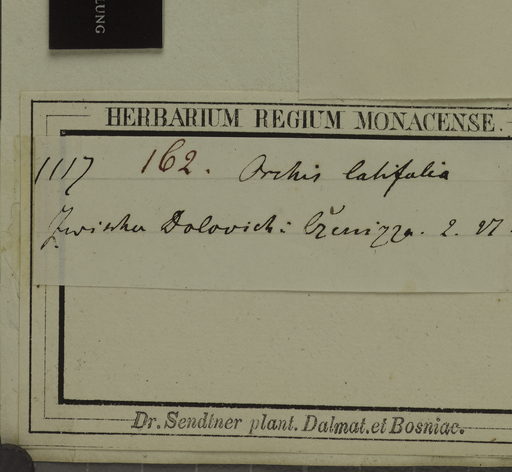 LUNG
HERBARIUM REGIUM MONACENSE.
1117 162. Orchis latifolia
Dolovich: 2.
Dr. Sendtner plant. Dalmat. et Bosniac.